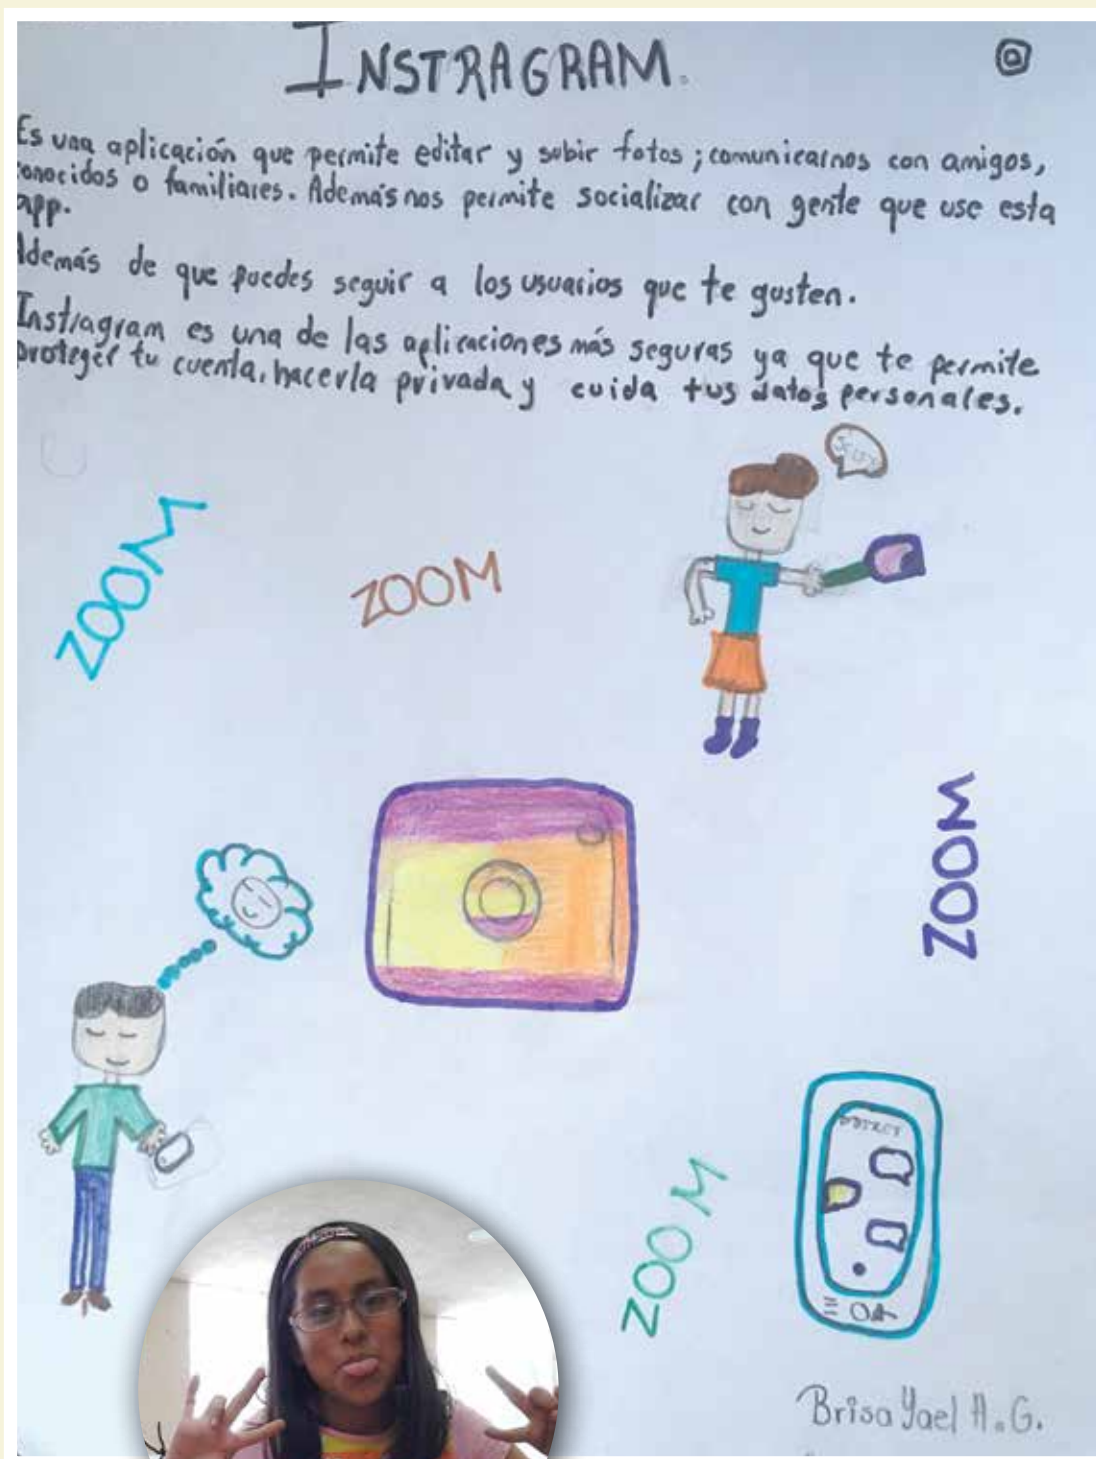 INSTRAGRAM.
Es una aplicación que permite editar y subir fotos; comunicarnos con amigos,
conocidos o familiares. Además nos permite socializar con gente que use esta
app.
Además de que puedes seguir a los usuarios que te gusten.
Instragram es una de las aplicaciones más seguras ya que te permite
proteger tu cuenta, hacerla privada y cuida tus datos personales.
ZOOM
ZOOM
ZOOM
ZOOM
Brisa Yael H. G.